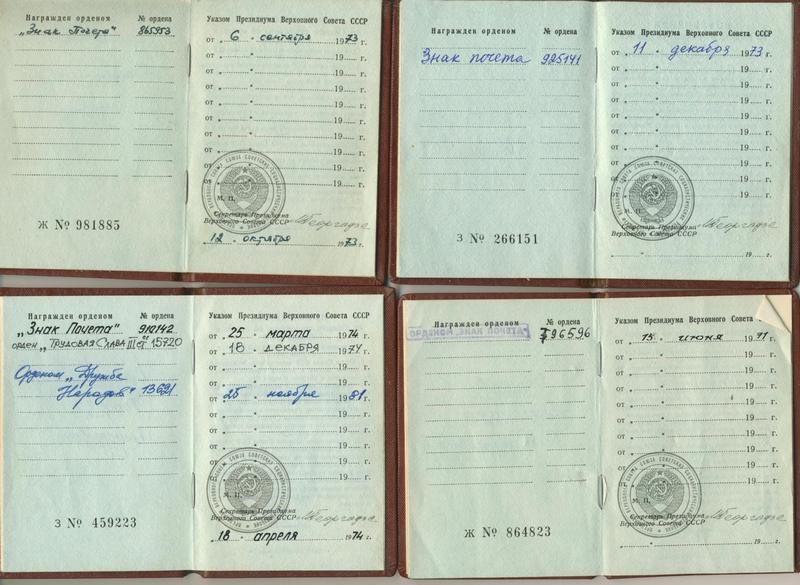 Награжден орденом № ордена
„Знак Почета" 865953
Ж № 981885
Указом Президиума Верховного Совета СССР
от „ 6 " сентября 1973 г.
от „ " 19 г.
от „ " 19 г.
от „ " 19 г.
от „ " 19 г.
от „ " 19 г.
от „ " 19 г.
от „ " 19 г.
от „ " 19 г.
М. П.
Секретарь Президиума
Верховного Совета СССР
„ 12 " октября 1973 г.
Награжден орденом № ордена
Знак почета 925141
З № 266151
Указом Президиума Верховного Совета СССР
от „ 11 " декабря 1973 г.
от „ " 19 г.
от „ " 19 г.
от „ " 19 г.
от „ " 19 г.
от „ " 19 г.
от „ " 19 г.
от „ " 19 г.
от „ " 19 г.
М. П.
Секретарь Президиума
Верховного Совета СССР
„ " 19 г.
Награжден орденом № ордена
„Знак Почета" 910142
орден „Трудовая Слава III ст." 15720
Орденом „Дружбе
Народов" 13621
З № 459223
Указом Президиума Верховного Совета СССР
от „ 25 " марта 1974 г.
от „ 18 " декабря 1974 г.
от „ " 19 г.
от „ 25 " ноября 1981 г.
от „ " 19 г.
от „ " 19 г.
от „ " 19 г.
от „ " 19 г.
от „ " 19 г.
М. П.
Секретарь Президиума
Верховного Совета СССР
„ 18 " апреля 1974 г.
Награжден орденом № ордена
596596
Ж № 864823
Указом Президиума Верховного Совета
от „ 15 " июня 1971 г.
от „ " 19 г.
от „ " 19 г.
от „ " 19 г.
от „ " 19 г.
от „ " 19 г.
от „ " 19 г.
от „ " 19 г.
от „ " 19 г.
М. П.
Секретарь Президиума
Верховного Совета СССР
„ " 19 г.